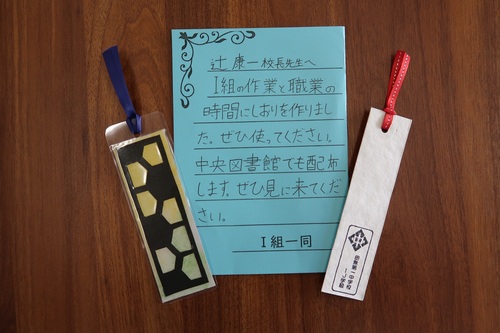 辻 康一校長先生へ
I組の作業と職業の
時間にしおりを作りまし
た。ぜひ使ってください。
中央図書館でも配布
します。ぜひ見に来てくだ
さい。
I組一同